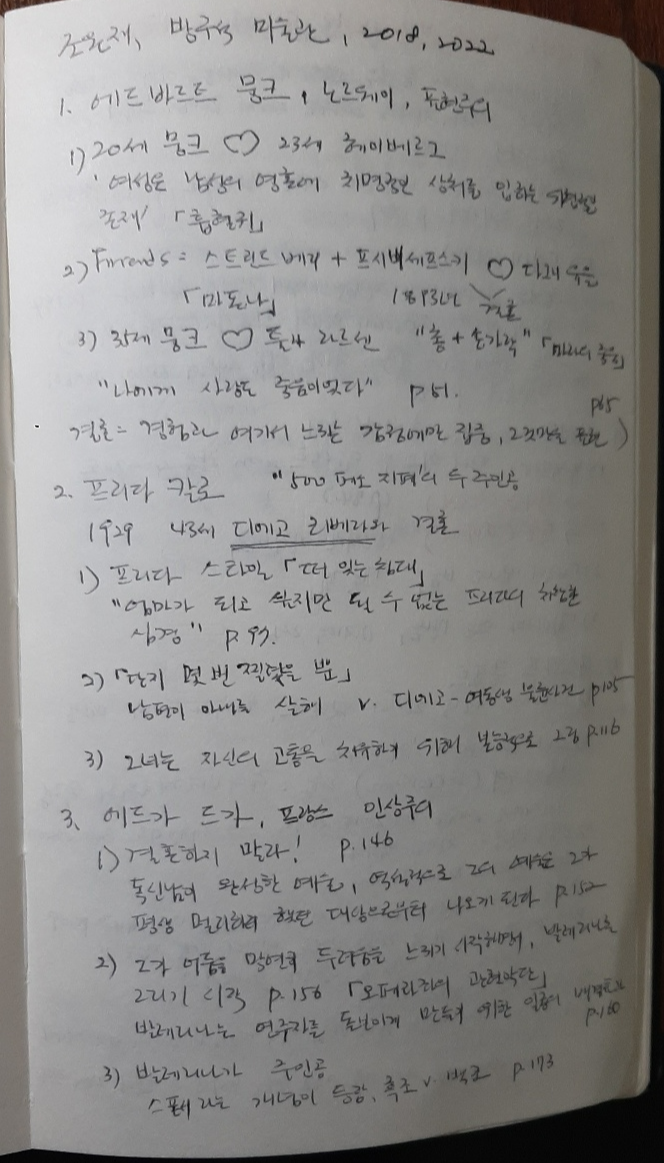 조원재, 방구석 미술관, 2018, 2022
1. 에드바르트 뭉크, 노르웨이, 표현주의
1) 20세 뭉크 ♡ 23세 헤이베르그
'여성은 남성의 영혼에 치명적인 상처를 입히는 위험한
존재' 「흡혈귀」
2) Friends = 스트린드베리 + 프시비셰프스키 ♡ 다그니 유을
「마돈나」 1893년 결혼
3) 35세 뭉크 ♡ 툴라 라르센 "총 + 손가락" 「마라의 죽음」
"나에게 사랑은 죽음이었다" p.51.
p65
결론 = 경험과 여기서 느끼는 감정에만 집중, 그것만을 표현 )
2. 프리다 칼로 "500 페소 지폐"의 두 주인공
1929 43세 디에고 리베라와 결혼
1) 프리다 스타일 「떠 있는 침대」
"엄마가 되고 싶지만 될 수 없는 프리다의 처참한
심경" p.93.
2) 「단지 몇 번 찔렀을 뿐」
남편이 아내를 살해 v. 디에고-여동생 불륜사건 p105
3) 그녀는 자신의 고통을 치유하기 위해 본능적으로 그림 p.116
3. 에드가 드가, 프랑스 인상주의
1) 결혼하지 말라! p.146
독신남이 완성한 예술, 역설적으로 그의 예술은 그가
평생 멀리하려 했던 대상으로부터 나오게 된다 p.152
2) 그가 어둠을 막연히 두려움을 느끼기 시작하면서, 발레리나를
그리기 시작 p.156 「오페라좌의 관현악단」
발레리나는 연주자를 돋보이게 만들기 위한 일종의 배경효과
p.160
3) 발레리나가 주인공
라는 개념이 등장, 흑조 v. 백조 p.173